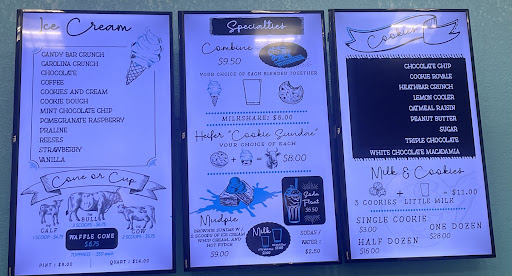 Ice Cream
CANDY BAR CRUNCH
CAROLINA CRUNCH
CHOCOLATE
COFFEE
COOKIES AND CREAM
COOKIE DOUGH
MINT CHOCOLATE CHIP
POMEGRANATE RASPBERRY
PRALINE
REESES
STRAWBERRY
VANILLA
Cone or Cup
CALF
BULL
COW
WAFFLE CONE
PINT : $9.00
QUART : $14.00
Specialties
Combine
$9.50
YOUR CHOICE OF EACH BLENDED TOGETHER
MILKSHAKE: $8.00
Heifer "Cookie Sundae"
YOUR CHOICE OF EACH
$8.00
Mudpie
BROWNIE SUNDAE W/
2 SCOOPS OF ICE CREAM
WHIP CREAM, AND
HOT FUDGE
$9.00
Soda
Float
$6.50
Milk
SODAS /
WATER :
$2.50
Cookies
CHOCOLATE CHIP
COOKIE ROYALE
HEATHBAR CRUNCH
LEMON COOLER
OATMEAL RAISIN
PEANUT BUTTER
SUGAR
TRIPLE CHOCOLATE
WHITE CHOCOLATE MACADAMIA
Milk & Cookies
+ = $11.00
3 COOKIES LITTLE MILK
SINGLE COOKIE
$3.00
ONE DOZEN
$28.00
HALF DOZEN
$16.00